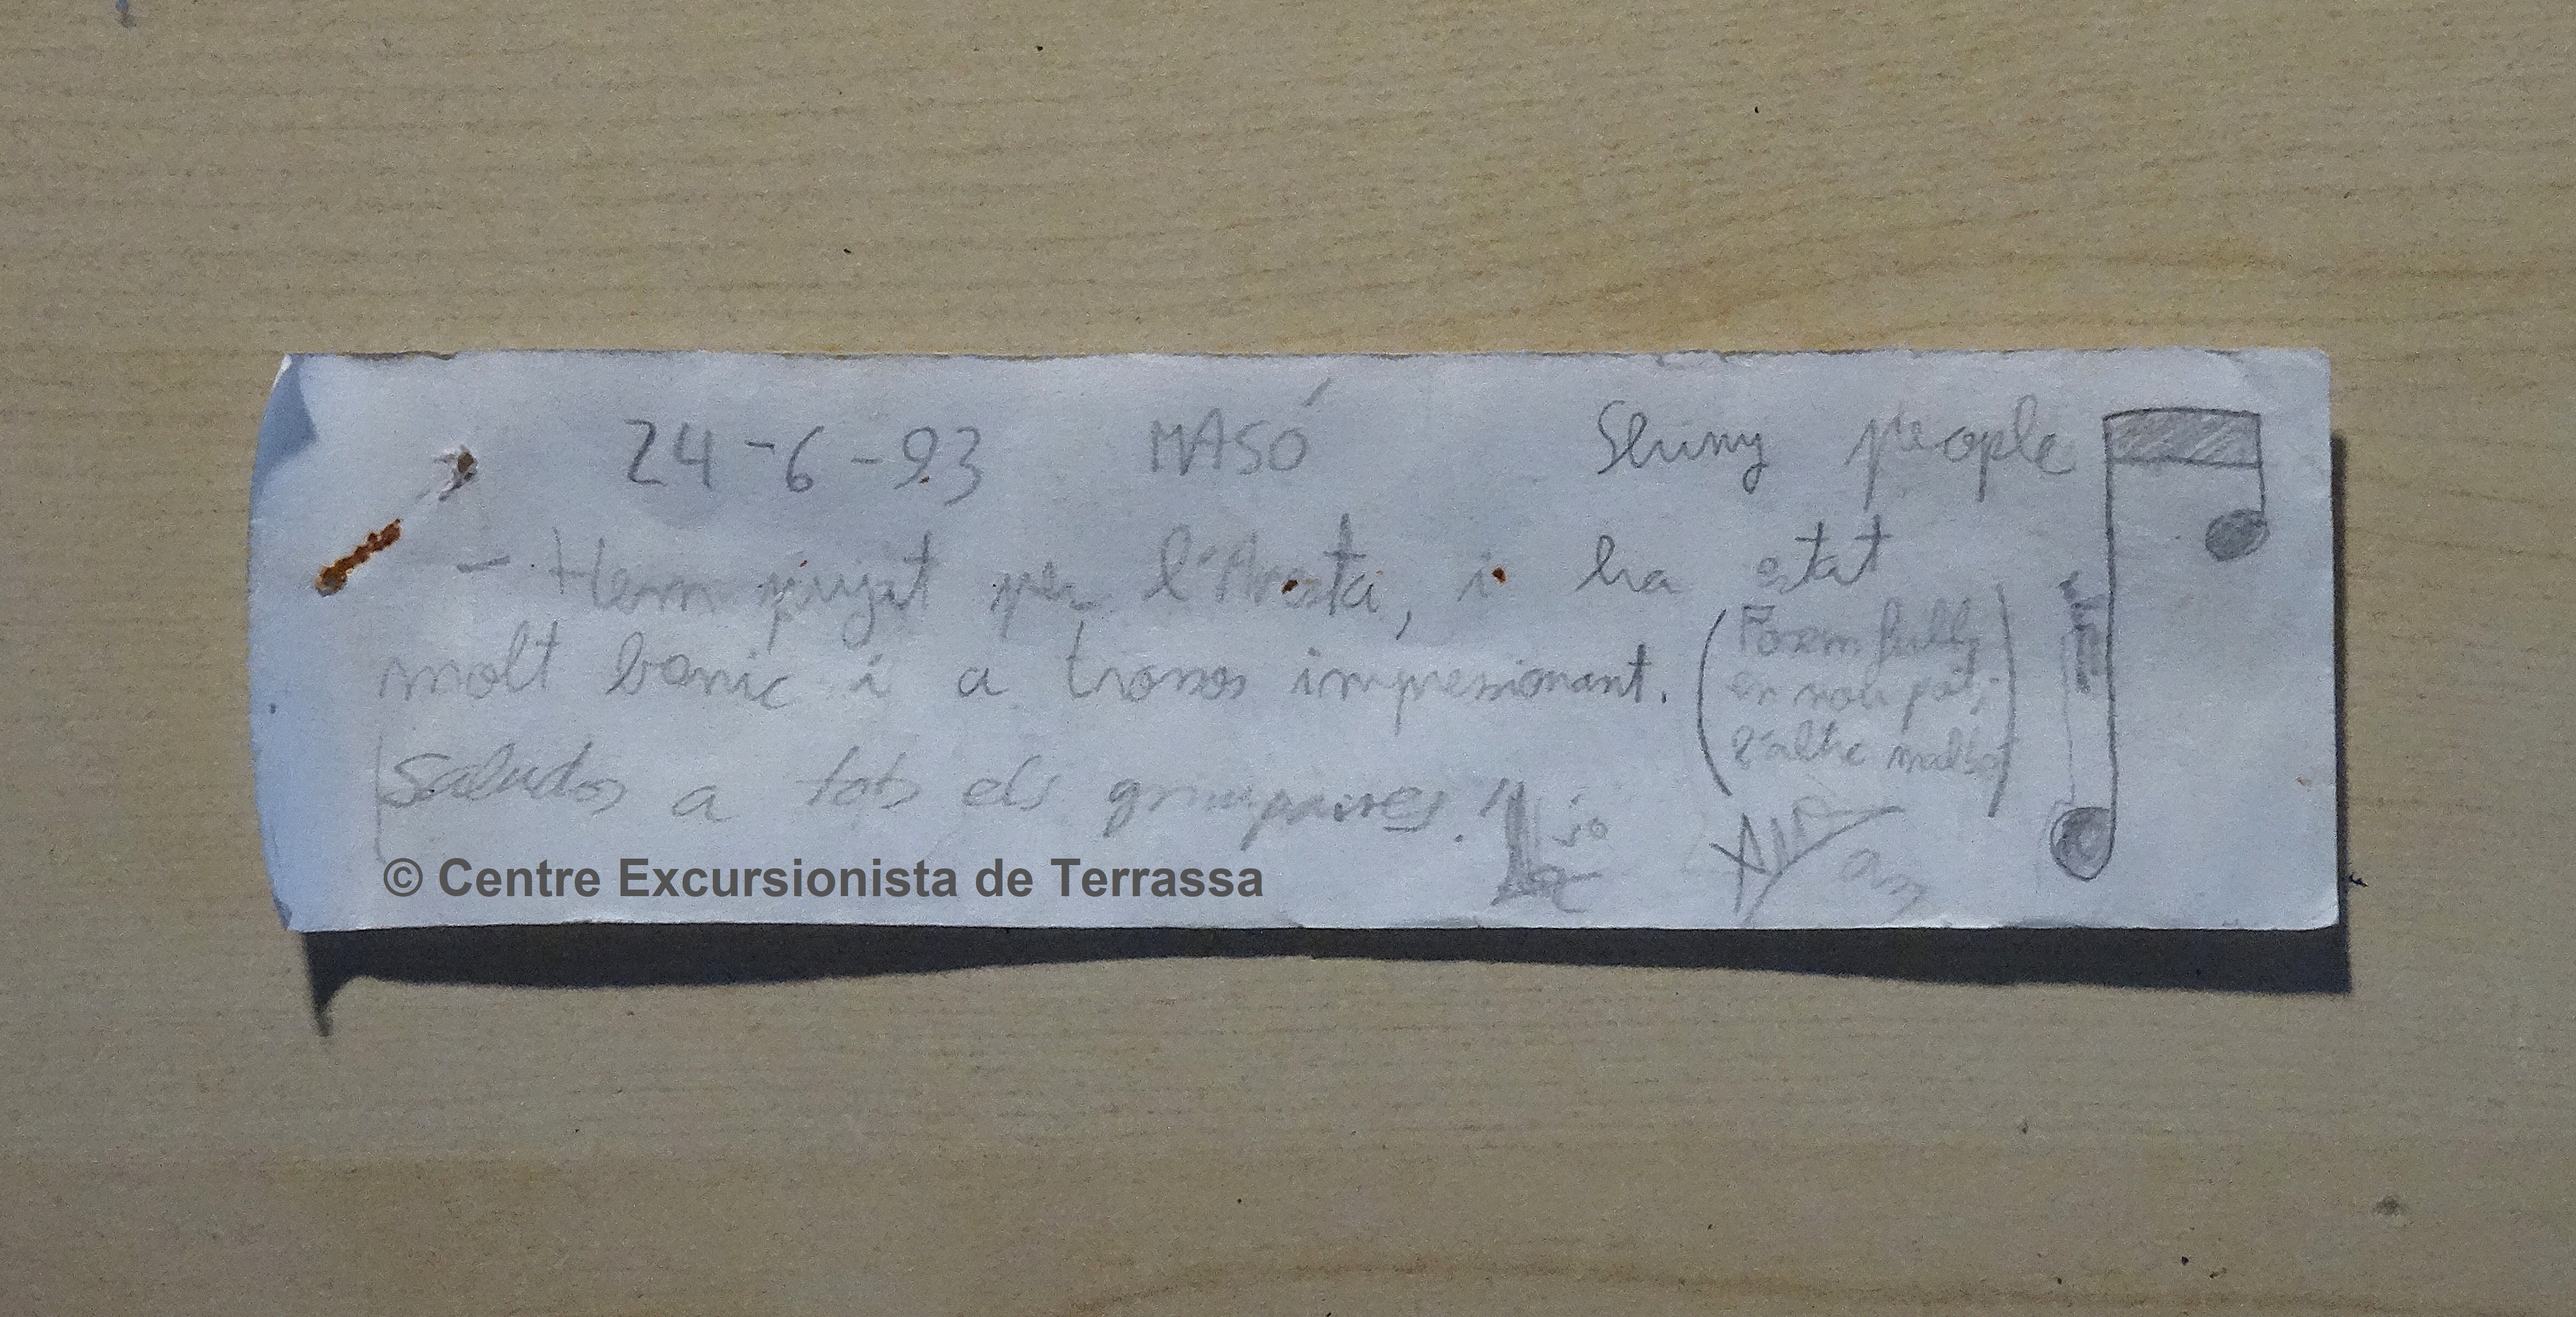 24-6-93 MASÓ Shiny people
- Hem pujat per l'Aresta, i ha estat
molt bonic i a trossos impressionant.
(Posem fulls
en nou pot,
l'altre mullat)
Saludos a tots els
© Centre Excursionista de Terrassa